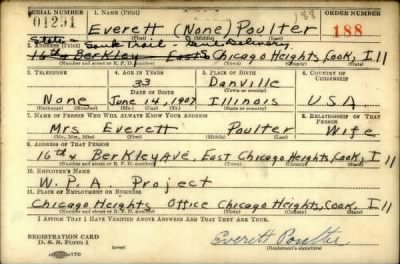 SERIAL NUMBER 1. NAME (Print) ORDER NUMBER
01291 Everett (None) Poulter 188 188
(First) (Middle) (Last)
State - Sauk Trail - Genl Delivery
2. ADDRESS (Print)
16th & Berkley East Chicago Heights, Cook, Ill
(Number and street or R. F. D. number) (Town) (County) (State)
3. TELEPHONE 4. AGE IN YEARS 5. PLACE OF BIRTH 6. COUNTRY OF CITIZENSHIP
33 Danville
DATE OF BIRTH (Town or county)
None June 14, 1907 Illinois USA
(Exchange) (No.) (Mo.) (Day) (Yr.) (State or country)
7. NAME OF PERSON WHO WILL ALWAYS KNOW YOUR ADDRESS 8. RELATIONSHIP OF THAT PERSON
Mrs Everett Poulter Wife
(Mr., Mrs., Miss) (First) (Middle) (Last)
9. ADDRESS OF THAT PERSON
16th & Berkley Ave, East Chicago Heights, Cook, Ill
(Number and street or R. F. D. number) (Town) (County) (State)
10. EMPLOYER'S NAME
W. P. A. Project
11. PLACE OF EMPLOYMENT OR BUSINESS
Chicago Heights Office Chicago Heights, Cook, Ill
(Number and street or R. F. D. number) (Town) (County) (State)
I AFFIRM THAT I HAVE VERIFIED ABOVE ANSWERS AND THAT THEY ARE TRUE.
REGISTRATION CARD
D. S. S. Form 1 Everett Poulter
(Registrant's signature)